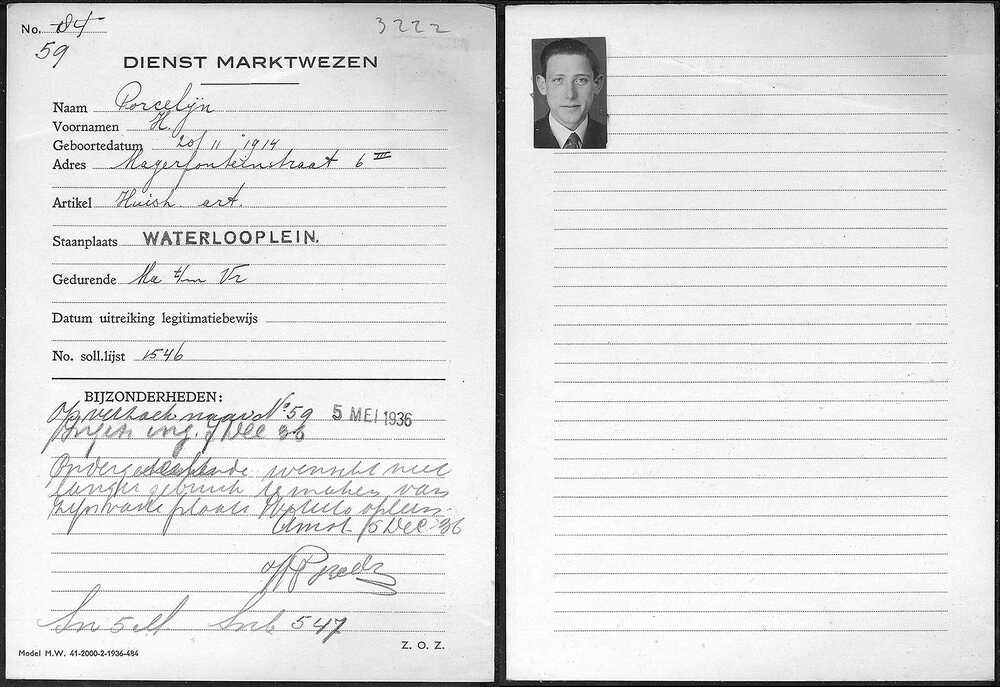 No. 84 3222
59
DIENST MARKTWEZEN
Naam Porcelijn
Voornamen H.
Geboortedatum 20/11 1914
Adres Magerfonteinstraat 6 III
Artikel Huish. art.
Staanplaats WATERLOOPLEIN.
Gedurende Ma t/m Vr
Datum uitreiking legitimatiebewijs
No. soll.lijst 1546
BIJZONDERHEDEN:
Op verzoek naar No. 59 5 MEI 1936
ing. Dec 36
Ondergetekende wenscht niet
langer gebruik te maken van
zijn vaste plaats Waterlooplein
Amst. Dec 36
547
Model M.W. 41-2000-2-1936-484 Z. O. Z.